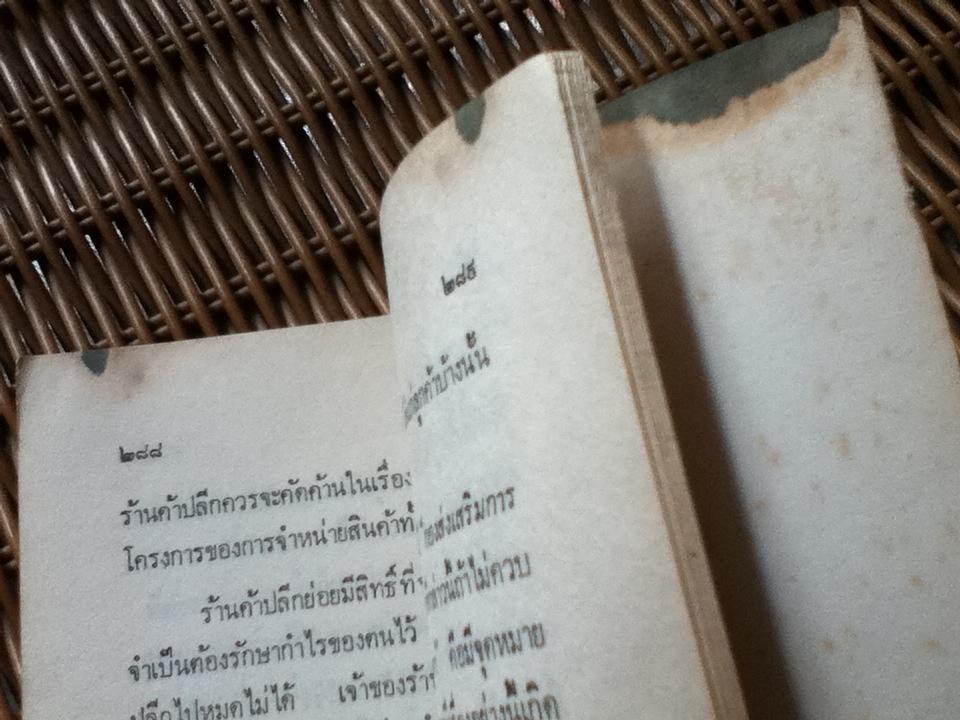 ๒๘๘
ร้านค้าปลีกควรจะคัดค้านในเรื่อง
โครงการของการจำหน่ายสินค้าที่
ร้านค้าปลีกย่อยมีสิทธิ์ที่
จำเป็นต้องรักษากำไรของตนไว้
ปลีกไปหมดไม่ได้ เจ้าของร้า
๒๘๙
ลูกค้าบ้างนั้น
ส่งเสริมการ
นี้ถ้าไม่ควบ
คือมีจุดหมาย
อย่างนี้เกิด